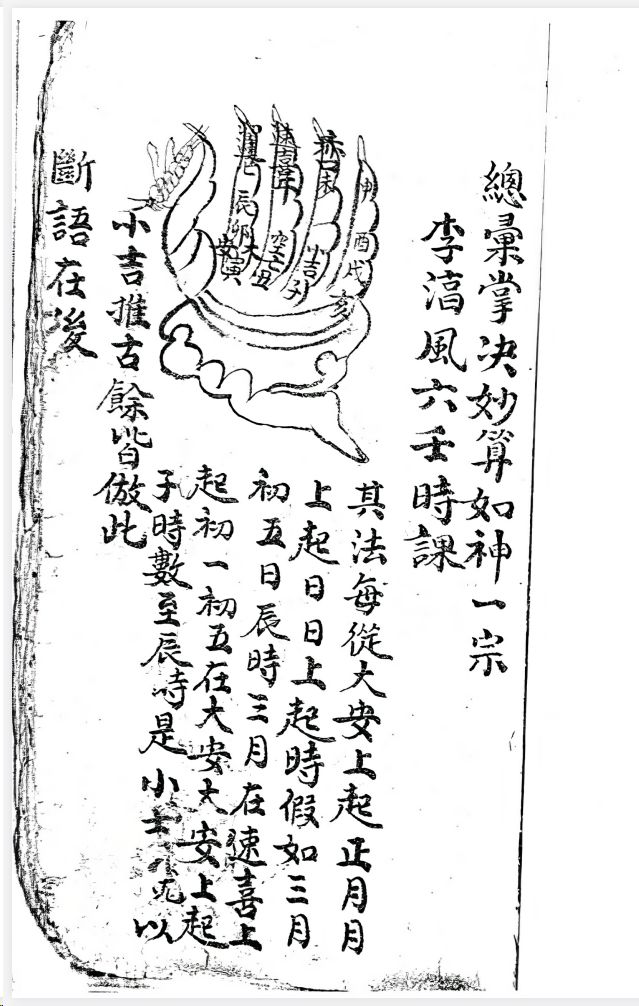 總彙掌决妙算如神一宗
李湻風六壬時課
申酉戌亥
赤口未
小吉子
速喜午
空亡丑
留連巳
辰卯
大安寅
其法每從大安上起正月月
上起日日上起時假如三月
初五日辰時三月在速喜上
起初一初五在大安大安上起
子時數至辰時是小吉凡以
小吉推古餘皆倣此
斷語在後